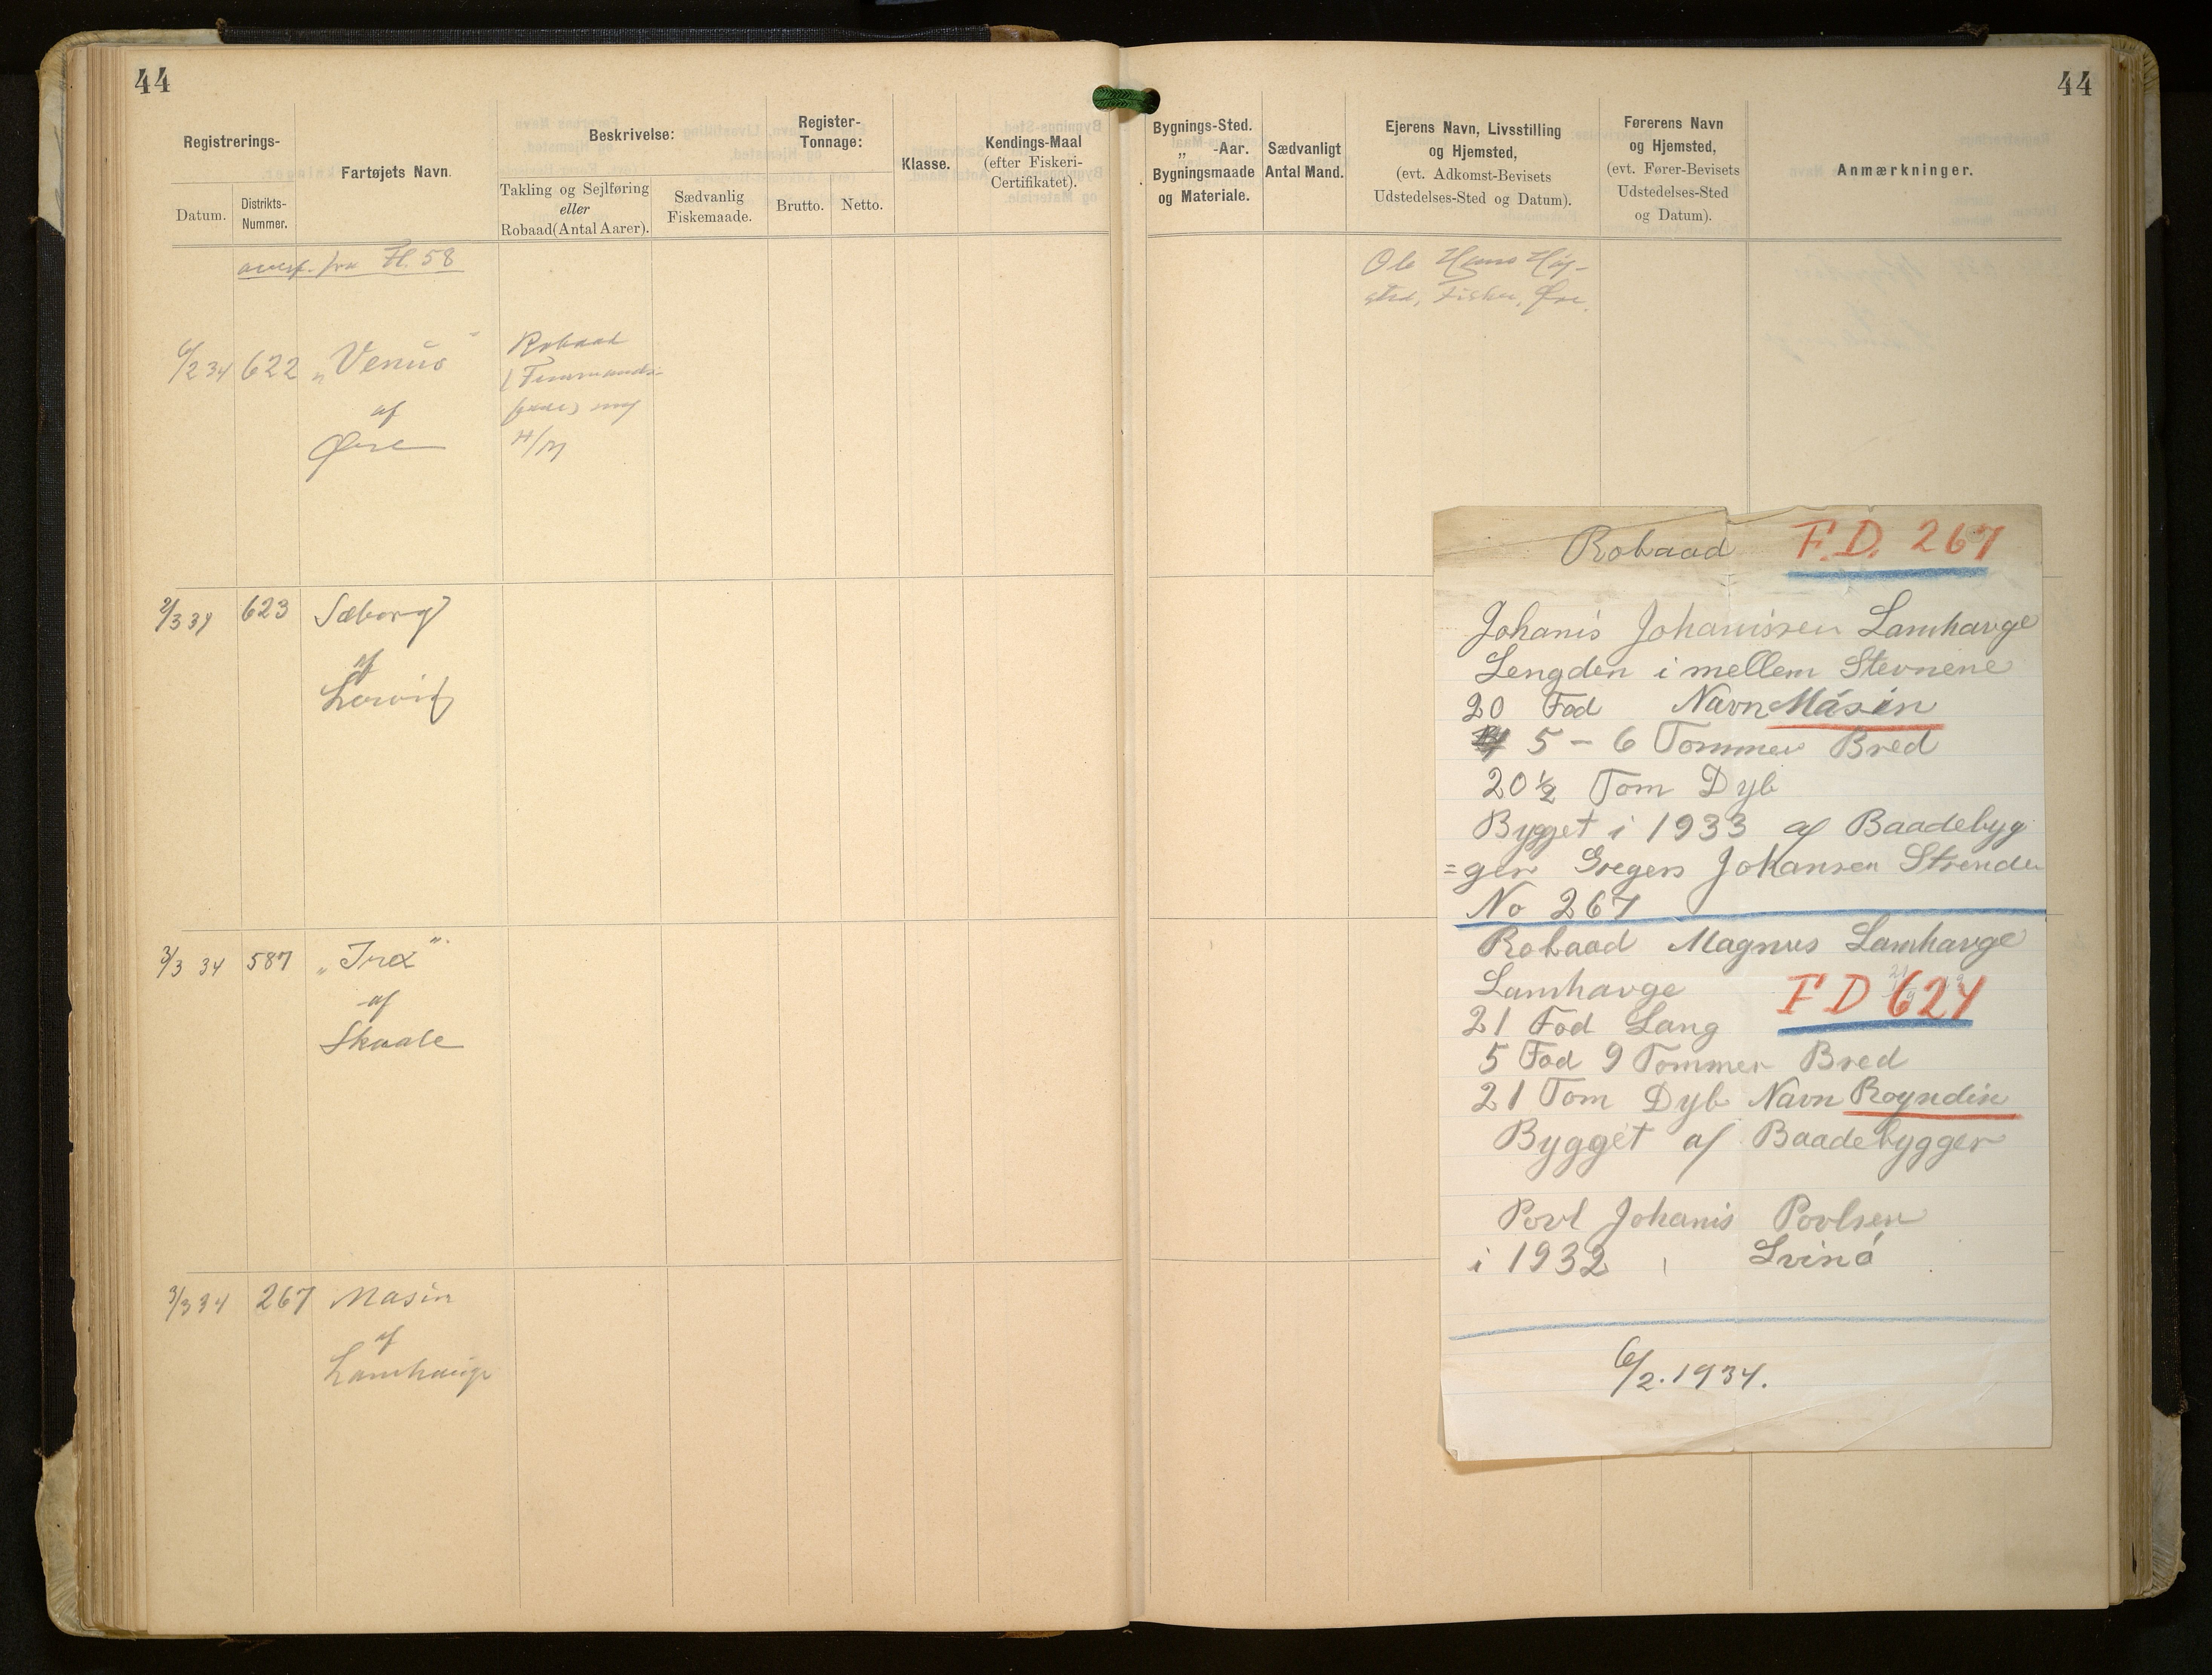 44
44
Registrerings-
Datum.
Distrikts-
Nummer.
Fartøjets Navn.
Beskrivelse:
Takling og Sejlføring
eller
Robaad (Antal Aarer).
Sædvanlig
Fiskemaade.
Register-
Tonnage:
Brutto.
Netto.
Klasse.
Kendings-Maal
(efter Fiskeri-
Certifikatet).
Bygnings-Sted.
„ -Aar.
Bygningsmaade
og Materiale.
Sædvanligt
Antal Mand.
Ejerens Navn, Livsstilling
og Hjemsted,
(evt. Adkomst-Bevisets
Udstedelses-Sted og Datum).
Førerens Navn
og Hjemsted,
(evt. Fører-Bevisets
Udstedelses-Sted
og Datum).
Anmærkninger.
fra H. 58
6/2 34 622 „Venus"
af
Øre
Robaad
H/M
Ole Hans Høj-
sted, Fisker, Øre.
2/3 34 623 Sæborg
af
Lorvig
3/3 34 587 „Irex"
af
Skaale
3/3 34 267 Masin
af
Lamhauge
Robaad F.D. 267
Johanis Johanissen Lamhavge
Lengden i mellem Stevnene
20 Fod Navn Másin
5 - 6 Tommer Bred
20 ½ Tom Dyb
Bygget i 1933 af Baadebyg
=ger Gregers Johansen Strender
No 267
Robaad Magnus Lamhavge
Lamhavge FD 624
21 Fod Lang
5 Fod 9 Tommer Bred
21 Tom Dyb Navn Royndin
Bygget af Baadebygger
Povl Johanis Povlsen
i 1932 Svinó
6/2. 1934.